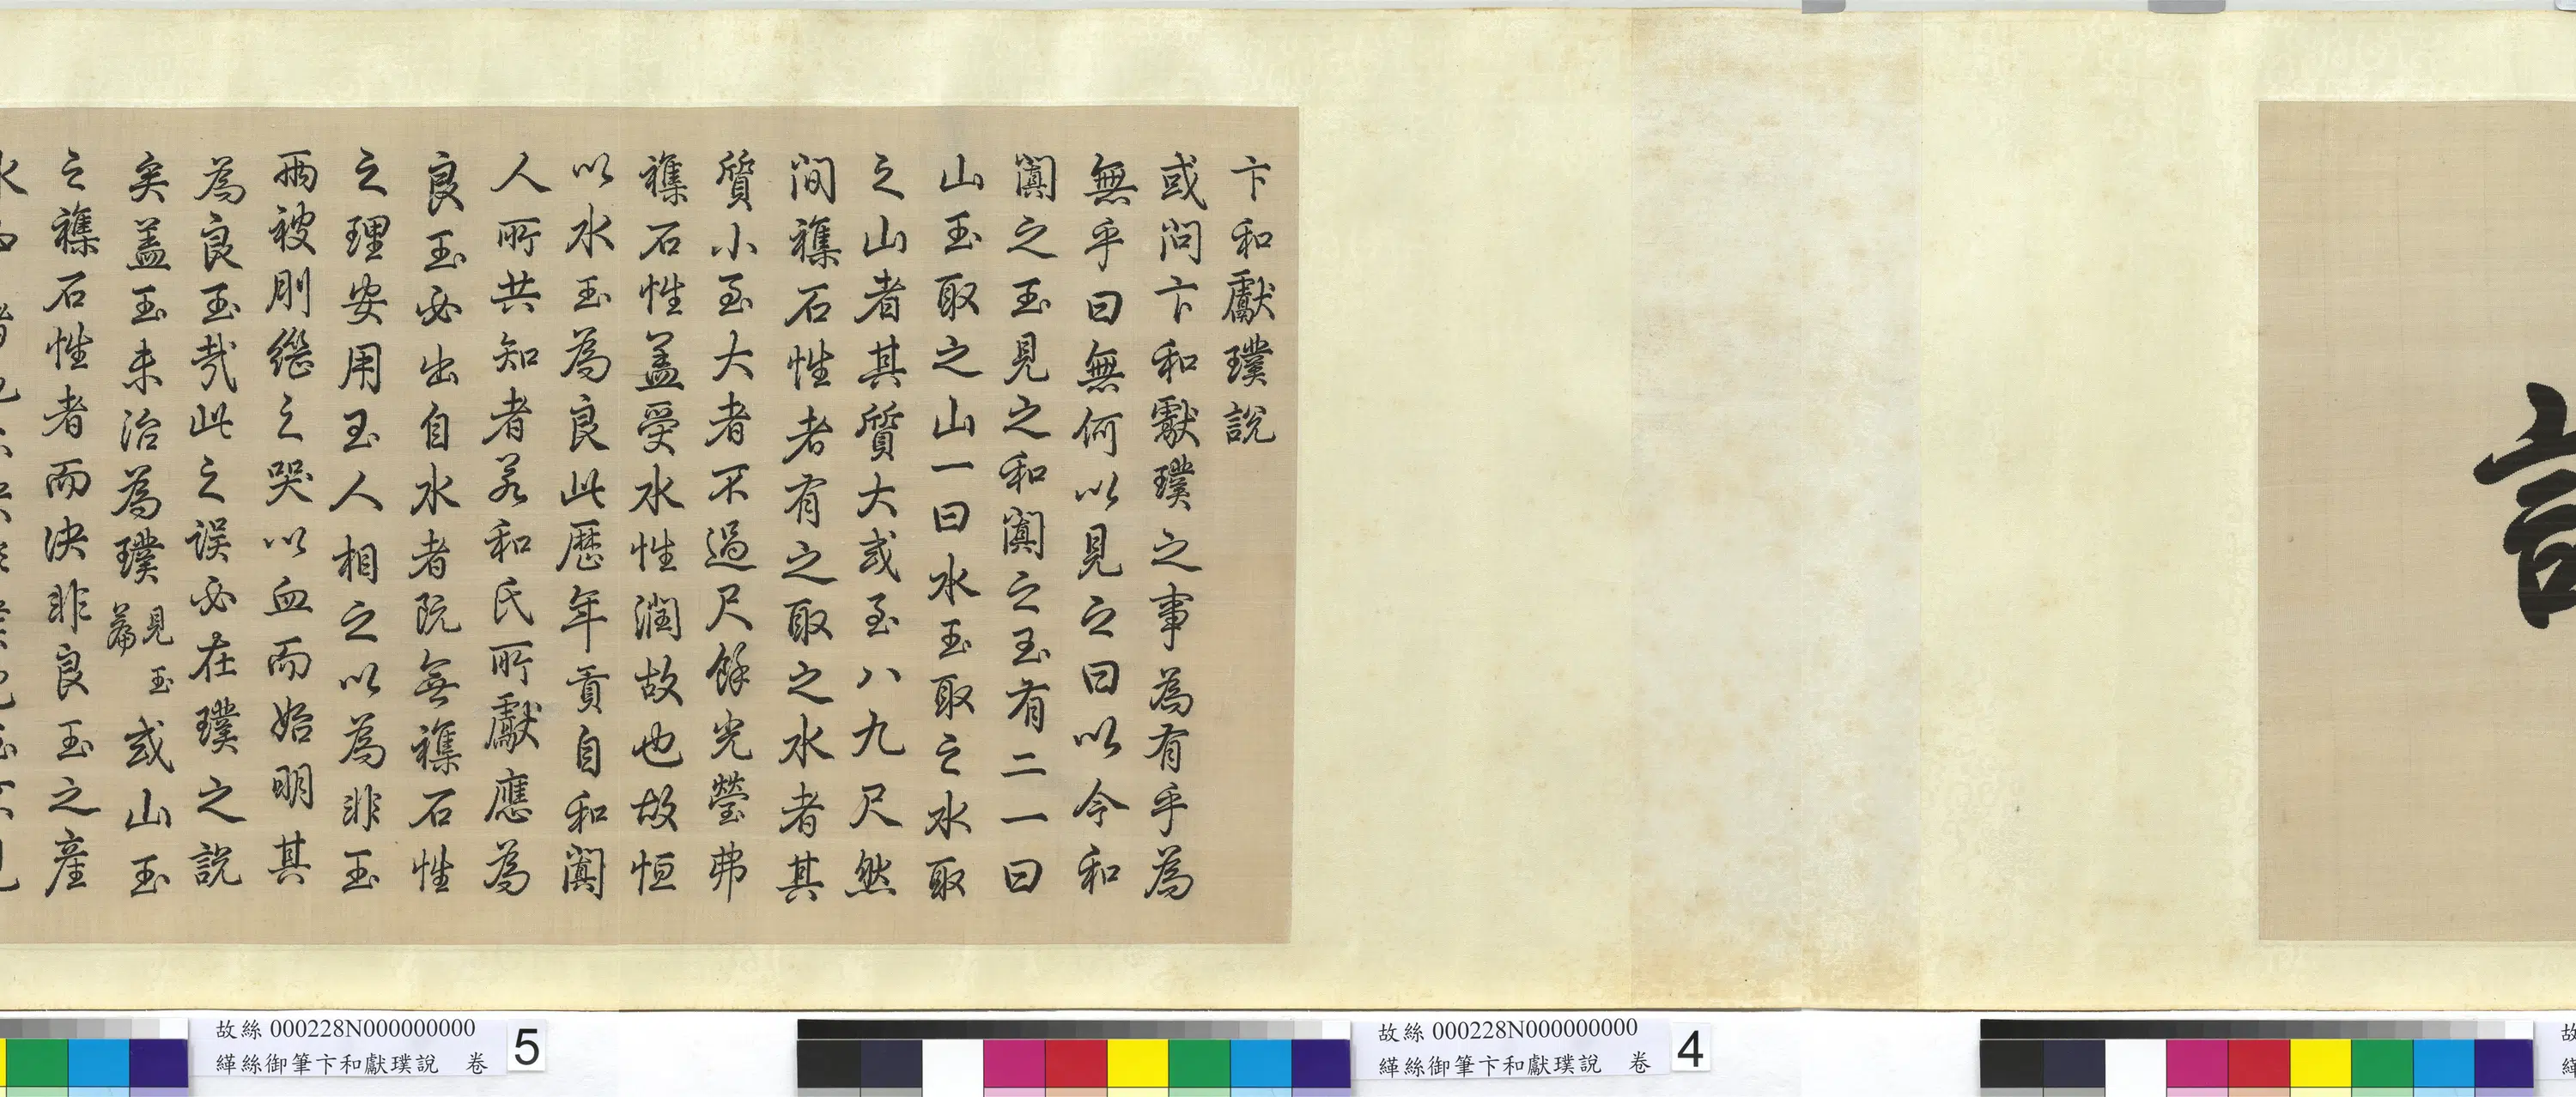 卞和獻璞說
或問卞和獻璞之事為有乎為
無乎曰無何以見之曰以今和
闐之玉見之和闐之玉有二一曰
山玉取之山一曰水玉取之水取
之山者其質大或至八九尺然
間襍石性者有之取之水者其
質小至大者不過尺餘光瑩弗
襍石性盖受水性潤故也故恒
以水玉為良此歷年貢自和闐
人所共知者若和氏所獻應為
良玉必出自水者既無襍石性
之理安用玉人相之以為非玉
兩被刖繼之哭以血而始明其
為良玉哉此之誤必在璞之說
矣盖玉未治為璞見玉篇或山玉
之襍石性者而決非良玉之產
故絲000228N000000000
緙絲御筆卞和獻璞說 卷
5
故絲000228N000000000
緙絲御筆卞和獻璞說 卷
4